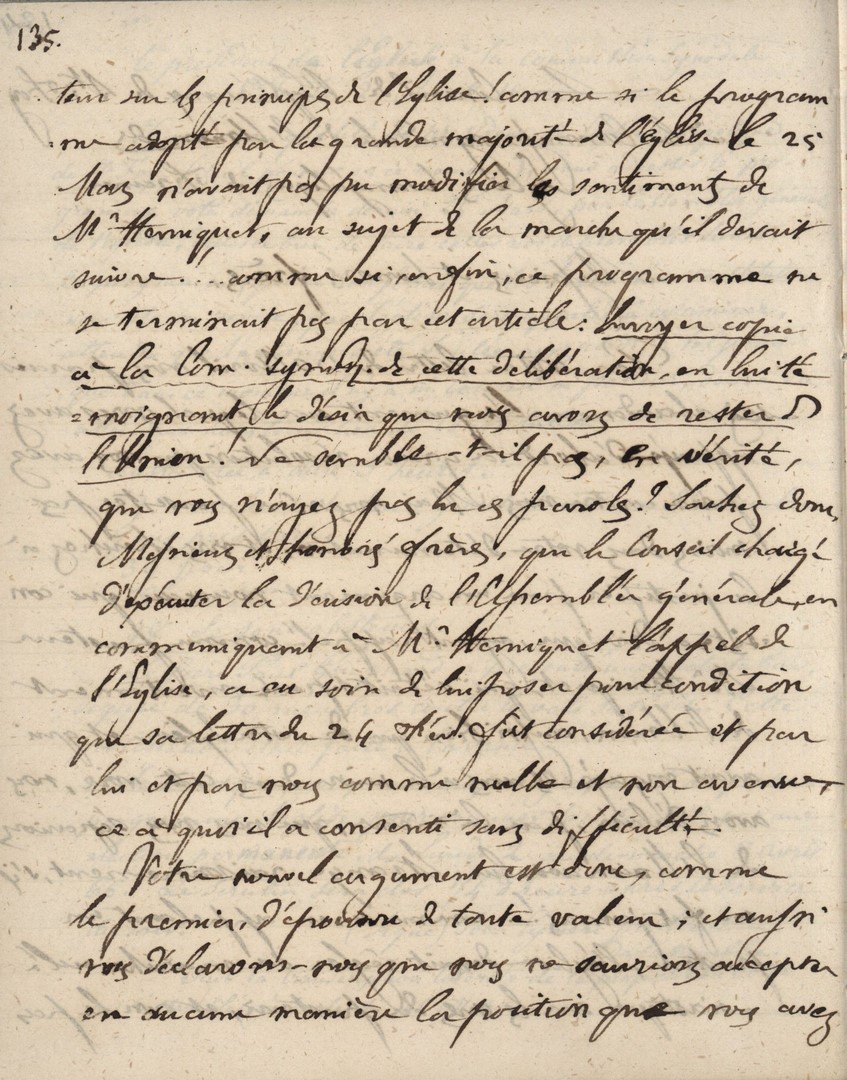 135.
teur sur les principes de l'Eglise! comme si le program
-me adopté par la grande majorité de l'église le 25
Mars n'avait pas pu modifier les sentiments de
Mr Herniquet, au sujet de la marche qu'il devait
suivre!... comme si, enfin, ce programme ne
se terminait pas par cet article: Envoyer copie
à la Com. synod. de cette délibération, en lui té
=moignant le désir que nous avons de rester ds
l'Union! Ne semble-t-il pas, en vérité,
que vous n'ayez pas lu ces paroles? Sachez donc,
Messieurs et honorés frères, que le Conseil chargé
d'exécuter la décision de l'Assemblée générale, en
communiquant à Mr Herniquet l'appel de
l'Eglise, a eu soin de lui poser pour condition
que sa lettre du 24 Fév. fut considérée et par
lui et par nous comme nulle et non avenue,
ce à quoi il a consenti sans difficulté.
Votre nouvel argument est donc, comme
le premier, dépourvu de toute valeur; et aussi
vous déclarons-nous que nous ne saurions accepter
en aucune manière la position que vous avez